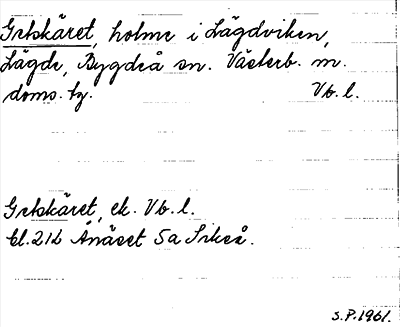 Getskäret, holme i Lägdviken,
Lägde, Bygdeå sn. Västerb. m.
doms. tg. Vb. l.
Getskäret, ek. Vb. l.
bl. 21L Ånäset 5a Sikeå.
S.P. 1961.